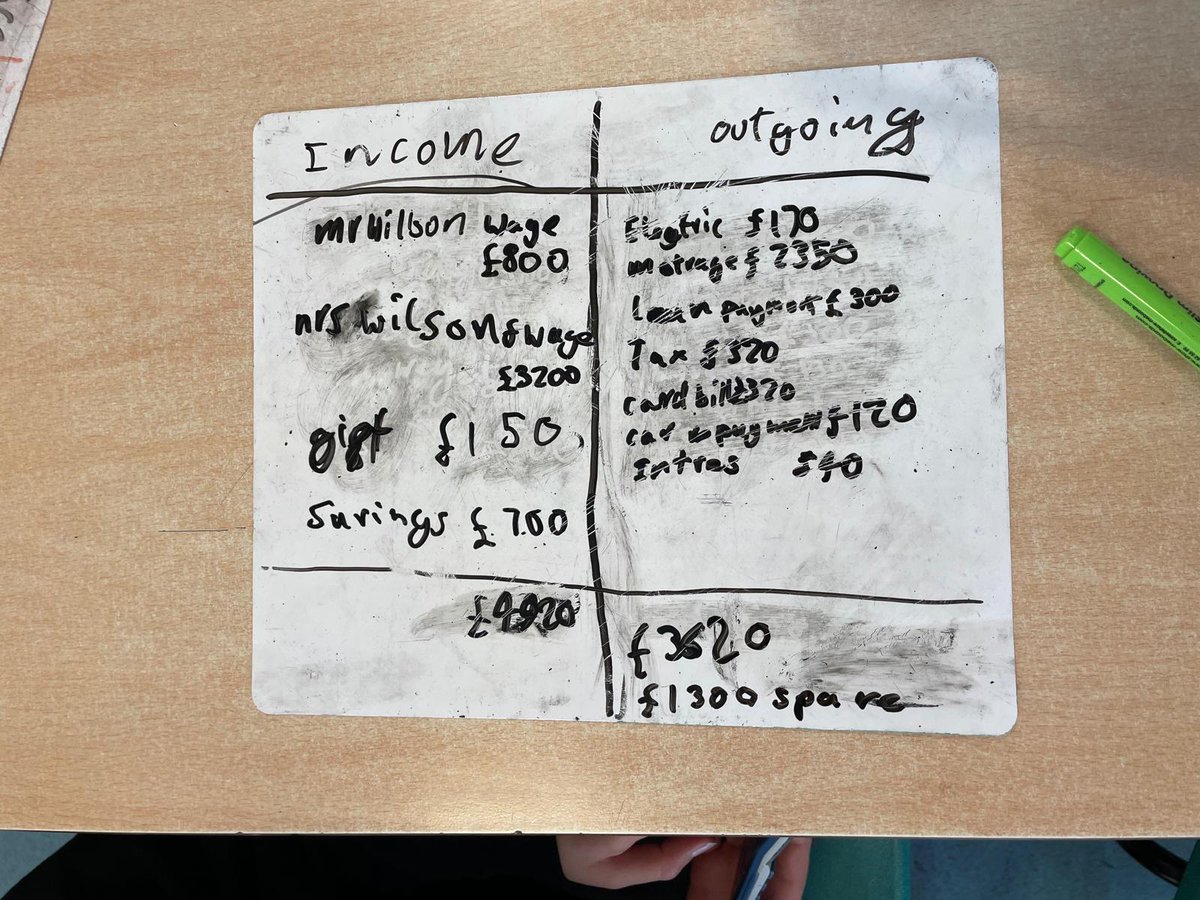 Income
mr Wilson wage
£800
mrs Wilson wage
£3200
gift £150
Savings £700
£4920
outgoing
Electric £170
motrage £2350
Loan payment £300
Tax £320
card bill £320
car payment £120
Intres £40
£3620
£1300 spare